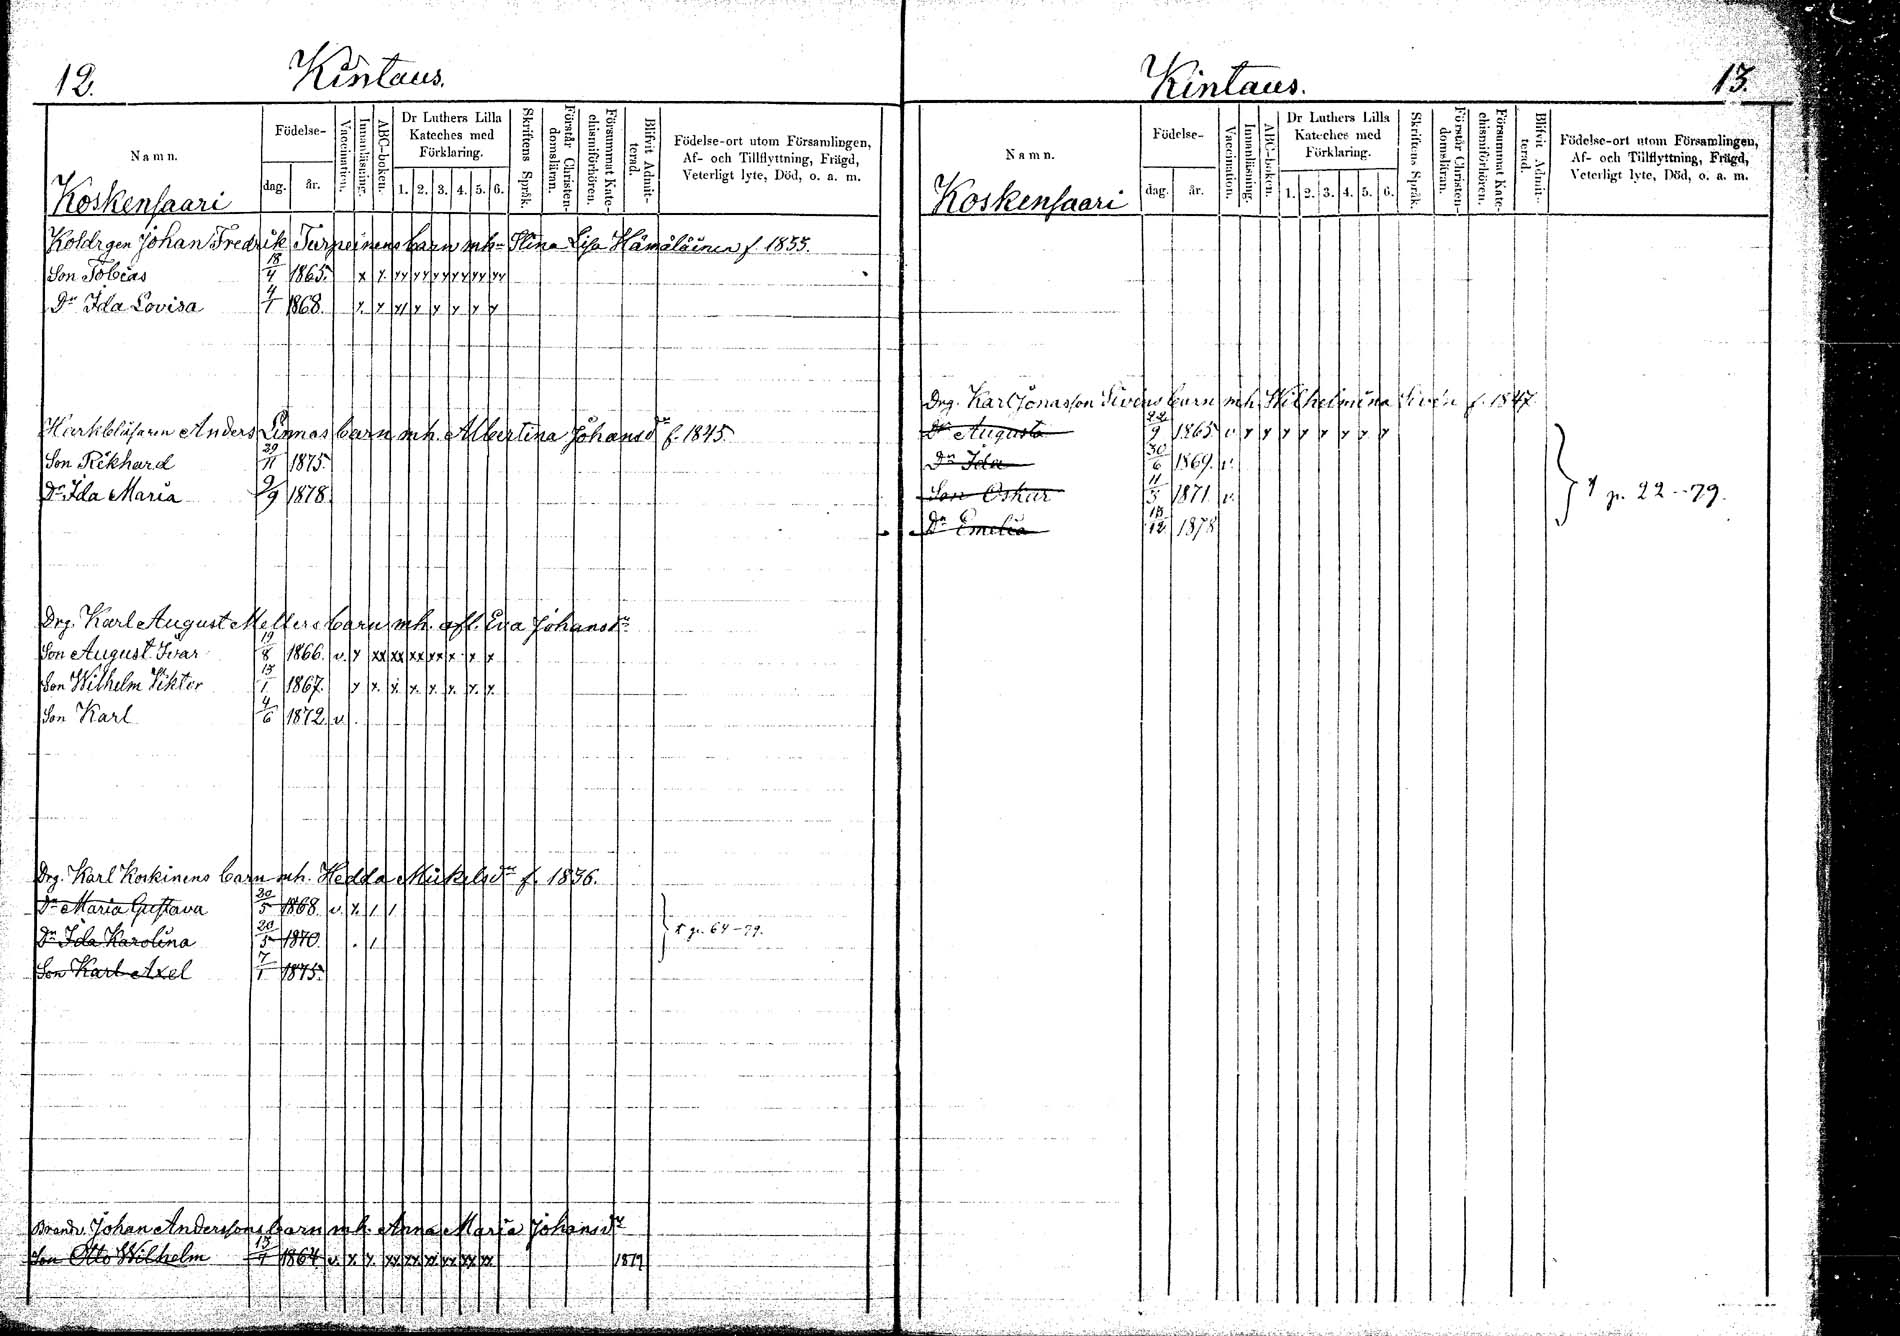 12.
Kintaus.
Namn.
Födelse-
dag.
år.
Vaccination.
Innanläsning.
ABC-boken.
Dr Luthers Lilla Kateches med Förklaring.
1. 2. 3. 4. 5. 6.
Skriftens Språk.
Förstår Christendomsläran.
Försummat Katechismiförhören.
Blifvit Admitterad.
Födelse-ort utom Församlingen,
Af- och Tillflyttning, Frägd,
Veterligt lyte, Död, o. a. m.
Koskensaari
Johan Fredrik Turpeinens barn mh Stina Lisa Hämäläinen f. 1835.
Son Tobias 18/4 1865. x x xx xx xx xx xx xx
Dr Ida Lovisa 4/1 1868. x x x x x x x x
Anders Linnas barn mh. Albertina Johansdr f. 1845.
Son Rikhard 29/11 1875.
Dr Ida Maria 9/9 1878.
Drg. Karl August Mellers barn mh. afl. Eva Johansdr
Son August Ivar 19/8 1866. v. x xx xx xx xx x x x
Son Wilhelm Viktor 15/1 1867. x x. x. x. x. x. x. x.
Son Karl 4/6 1872. v.
Drg. Karl Koskinens barn mh. Hedda Mikelsdr f. 1836.
Dr Maria Gustava 20/5 1868 v. x. / /
Dr Ida Karolina 20/5 1870. /
Son Karl Axel 7/1 1875.
p. 64-79.
Johan Anderssons barn mh. Anna Maria Johansdr
Son Otto Wilhelm 15/7 1864 v. x. x. xx xx xx xx xx xx 1879
Kintaus.
13.
Namn.
Födelse-
dag.
år.
Vaccination.
Innanläsning.
ABC-boken.
Dr Luthers Lilla Kateches med Förklaring.
1. 2. 3. 4. 5. 6.
Skriftens Språk.
Förstår Christendomsläran.
Försummat Katechismiförhören.
Blifvit Admitterad.
Födelse-ort utom Församlingen,
Af- och Tillflyttning, Frägd,
Veterligt lyte, Död, o. a. m.
Koskensaari
Drg. Karl Jonasson Sivéns barn mh. Wilhelmina Sivén f. 1847
Dr Augusta 22/9 1865 v x x x x x x x x
Dr Ida 30/6 1869. v.
Son Oskar 11/5 1871 v.
Dr Emelia 13/12 1878
p. 22--79.